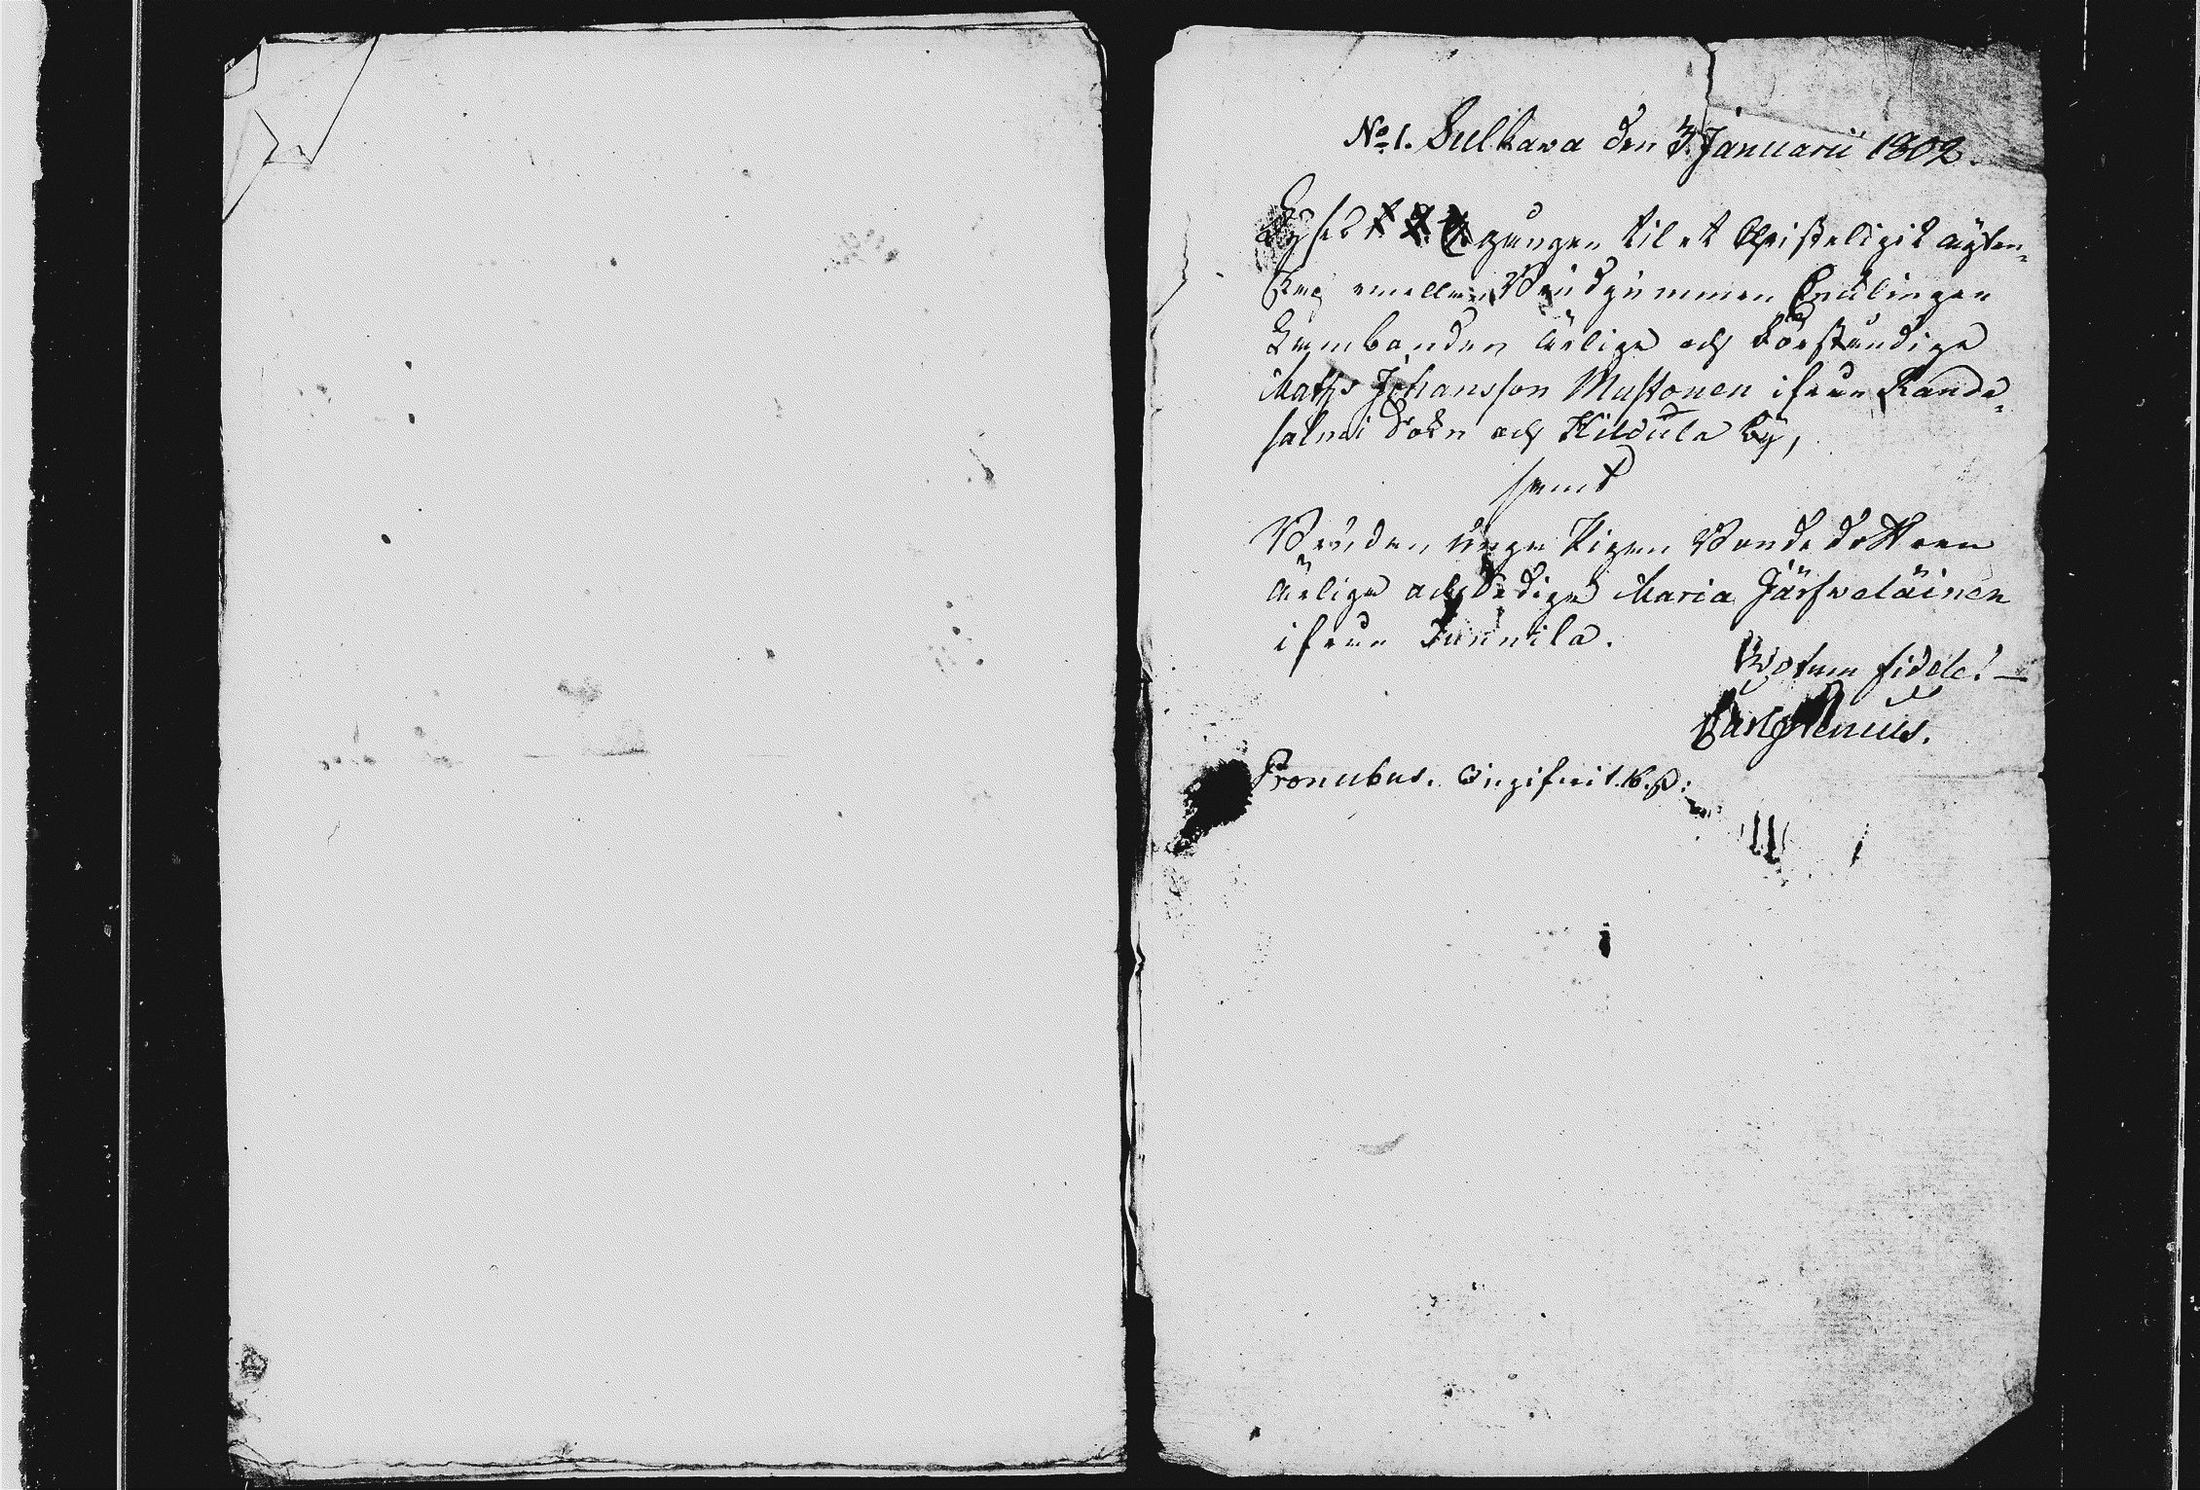 No 1. Sulkava den 3. Januarii 1802.
Lyses gången til et Christeligit ägten-
skap emellan Brudgummen Enklingen
Landbonden ärlige och förståndige
Matts Johansson Mustonen ifrån Randa-
salmi Sokn och Kildula by,
samt
Bruden unga Pigan Bonde dottren
ärliga och dediga Maria Järfveläinen
ifrån Tunnila.
Votum fidele!
Pronubus. Wigifwit 16. ß: